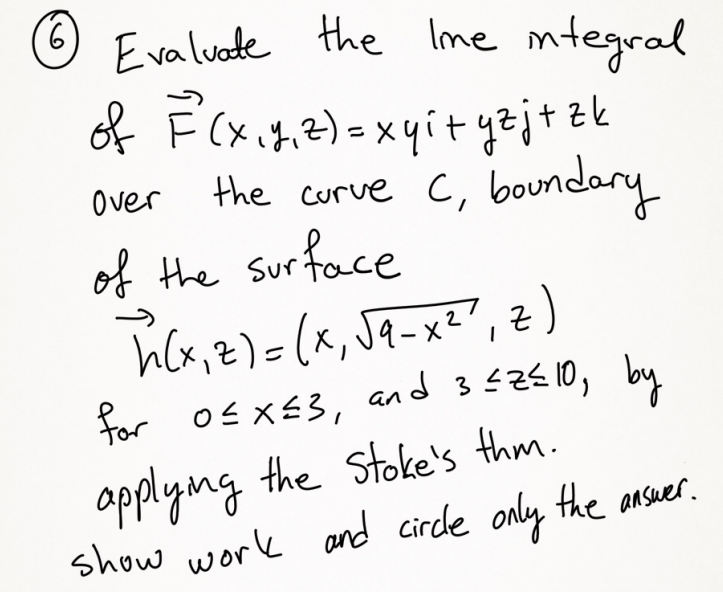 ⑥ Evaluate the line integral
of F⃗(x,y,z) = xyi + yzj + zk
over the curve C, boundary
of the surface
h⃗(x,z) = (x, √9-x², z)
for 0 ≤ x ≤ 3, and 3 ≤ z ≤ 10, by
applying the Stoke's thm.
show work and circle only the answer.